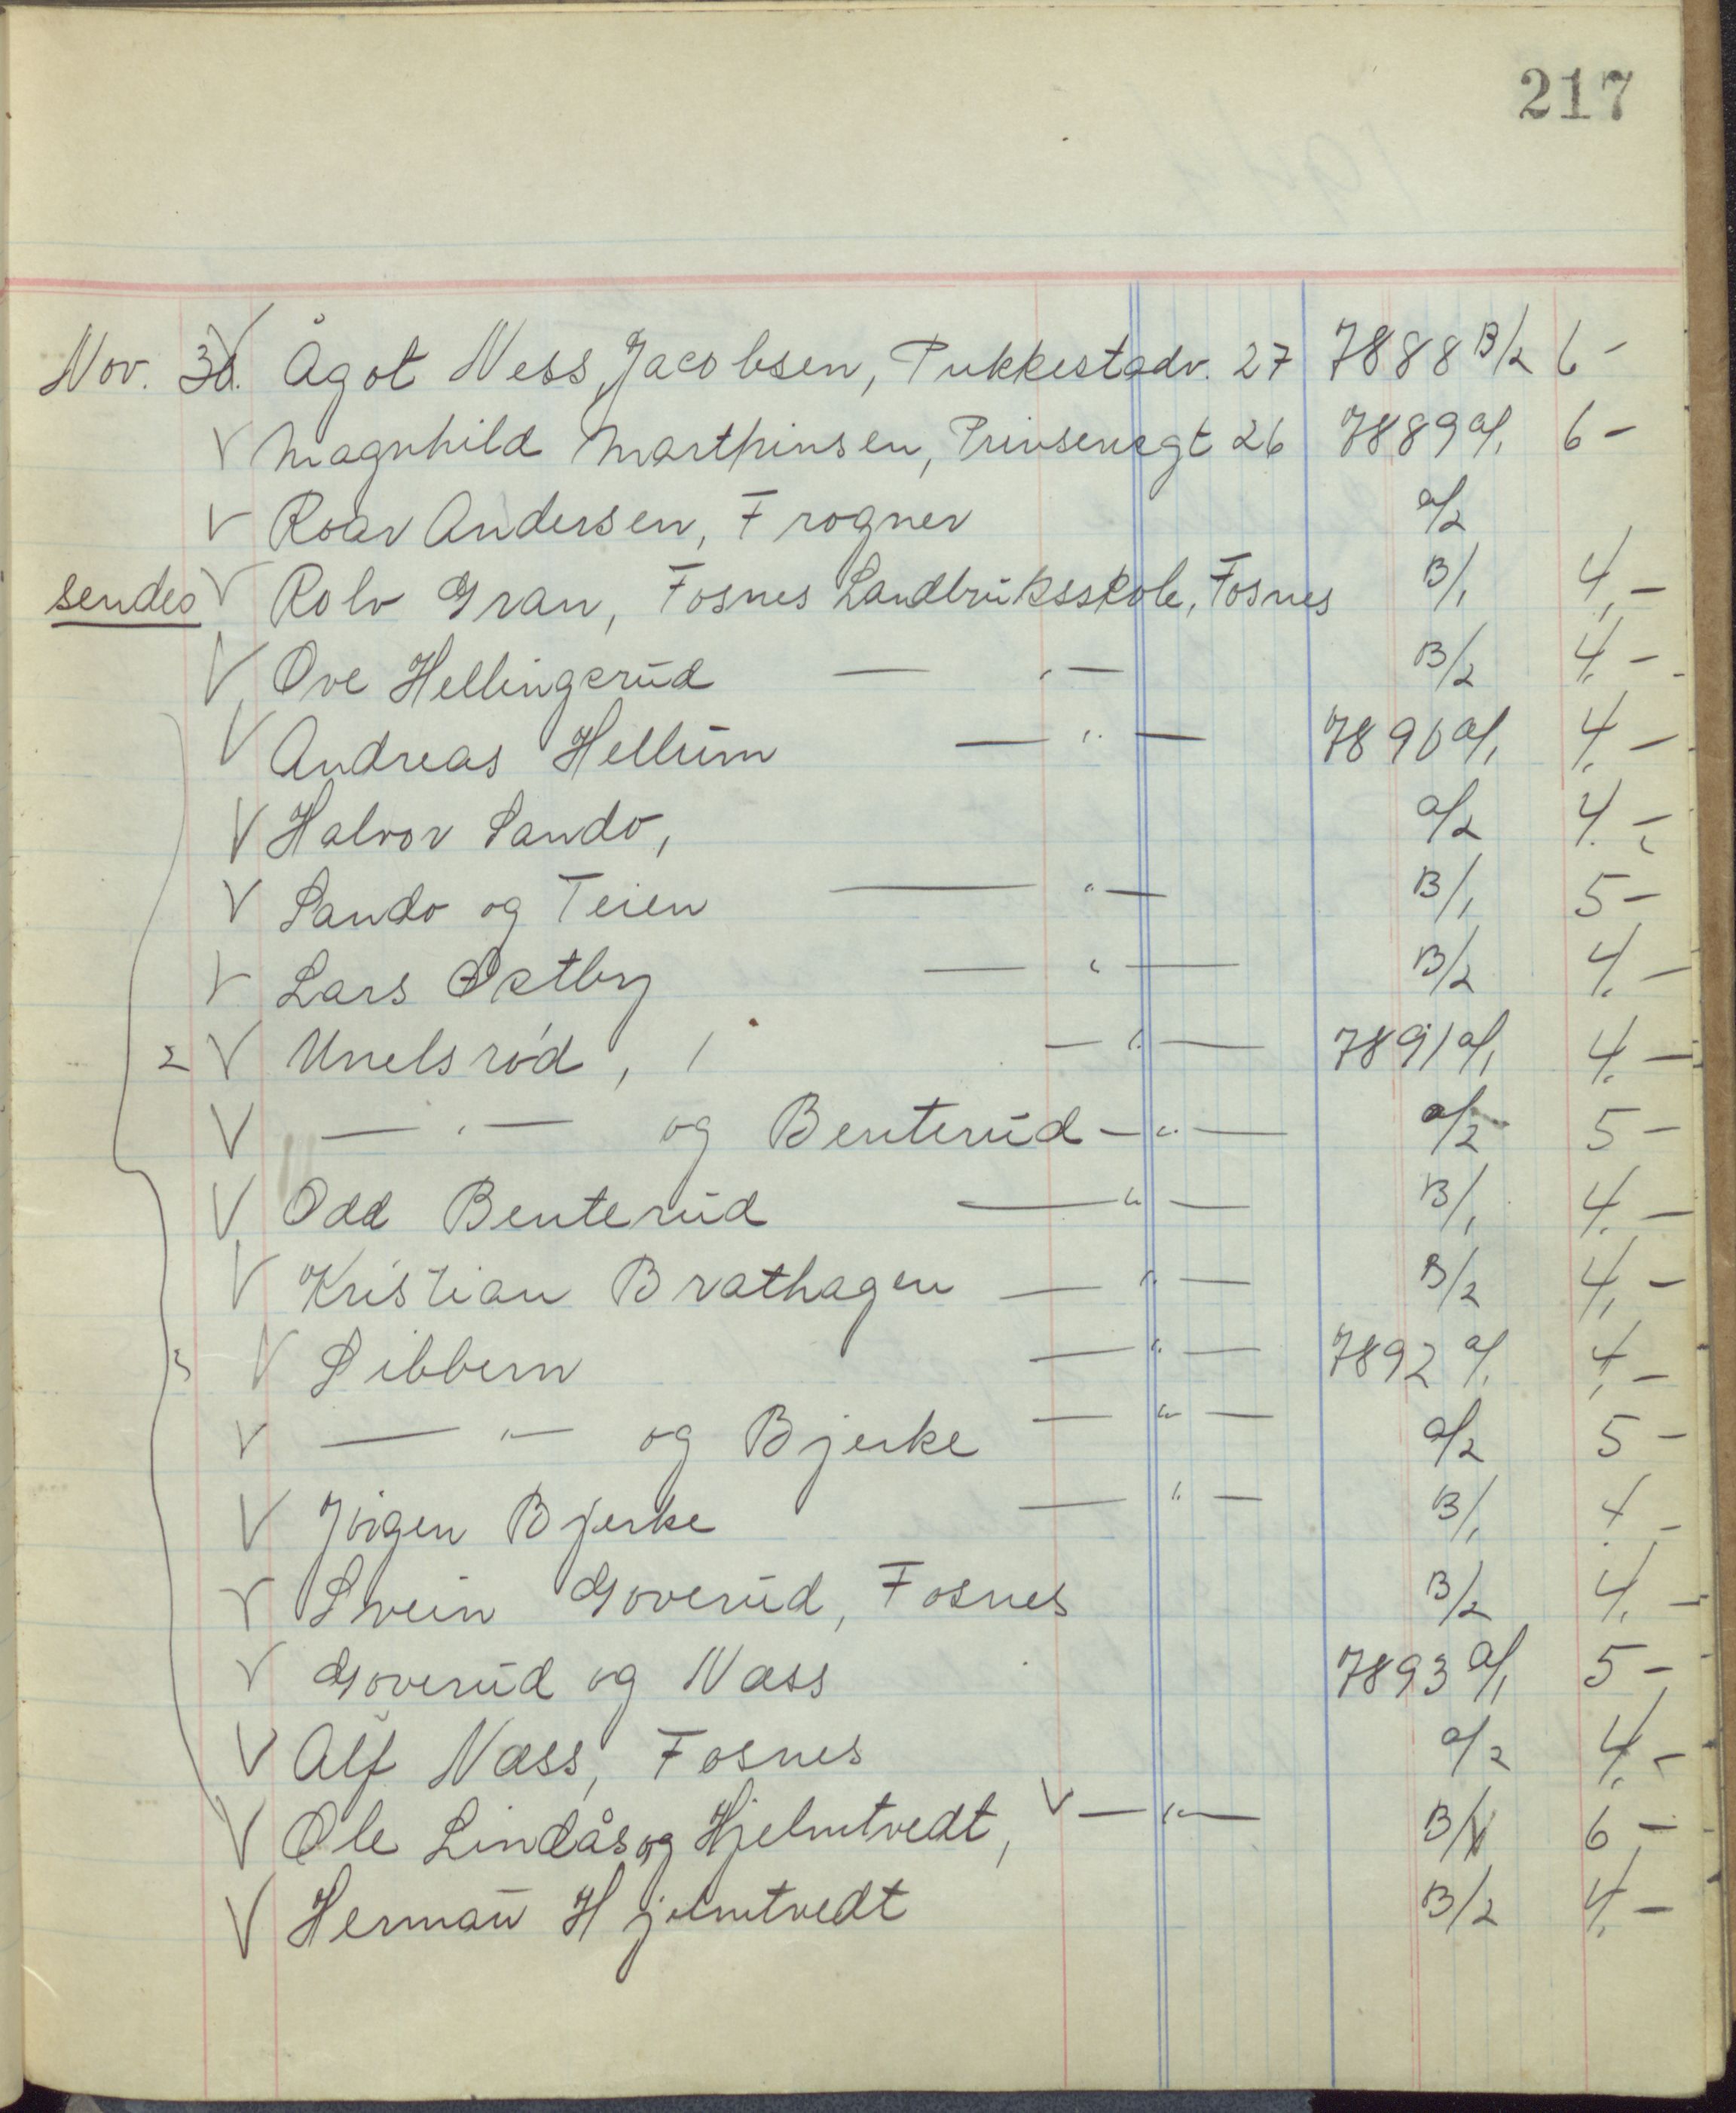 217
Nov. 30. V Ågot Ness Jacobsen, Pukkestadv. 27 7888 B/2 6 -
V Magnhild Marthinsen, Prinsensgt 26 7889 a/1 6 -
V Roar Andersen, Frogner a/2
sendes V Rolv Gran, Fosnes Landbruksskole, Fosnes B/1 4,-
V Ove Hellingsrud — " — B/2 4,-
V Andreas Hellum — " — 7890 a/1 4,-
V Halvor Sando, a/2 4,-
V Sando og Teien — " — B/1 5 -
V Lars Østby — " — B/2 4,-
2 V Unelsrød, — " — 7891 a/1 4,-
V — " — og Benterud — " — a/2 5 -
V Odd Benterud — " — B/1 4,-
V Kristian Brathagen — " — B/2 4,-
V Sibbern — " — 7892 a/1 4,-
V — " — og Bjerke — " — a/2 5 -
V Jörgen Bjerke — " — B/1 4,-
V Svein Goverud, Fosnes B/2 4,-
V Goverud og Næss 7893 a/1 5 -
V Alf Næss, Fosnes a/2 4,-
V Ole Lindås og Hjelmtvedt, V — " — B/1 6 -
V Herman Hjelmtvedt B/2 4,-